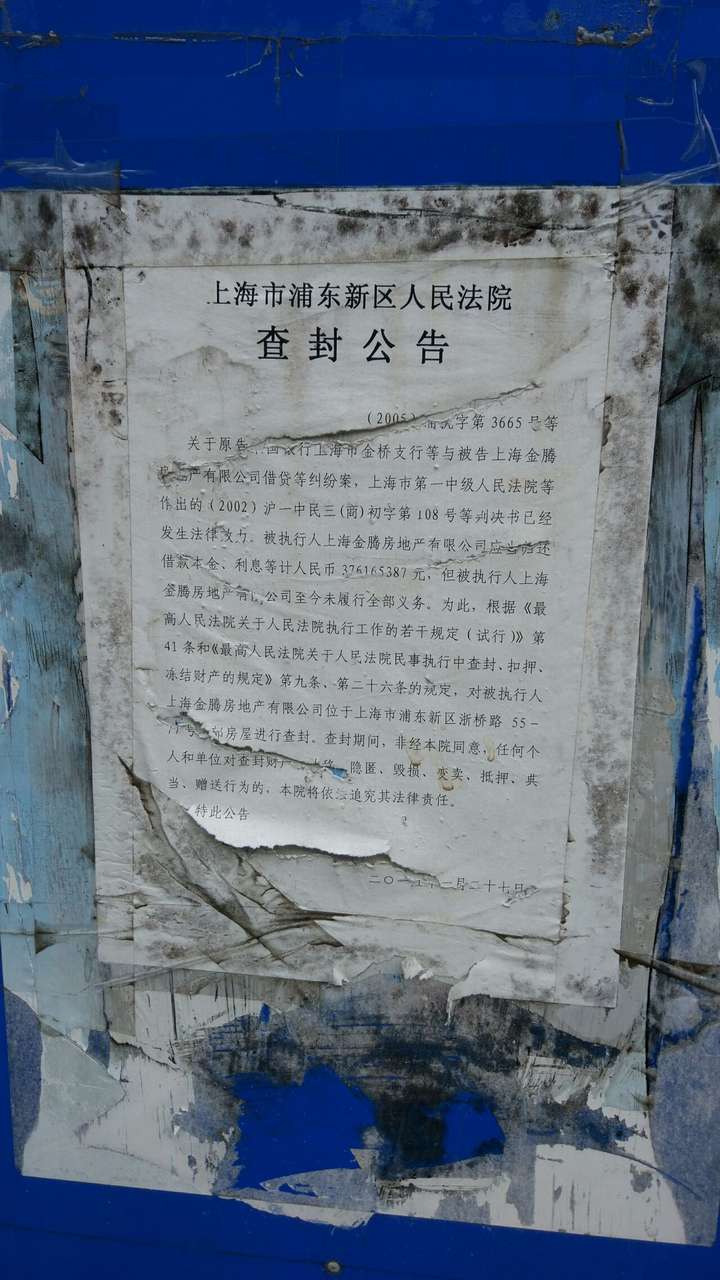 上海市浦东新区人民法院
查封公告
(2005) 字第 3665 号等
关于原告 银行上海市金桥支行等与被告上海金腾
产有限公司借贷等纠纷案，上海市第一中级人民法院等
作出的（2002）沪一中民三(商)初字第 108 号等判决书已经
发生法律效力。被执行人上海金腾房地产有限公司应当归还
借款本金、利息等计人民币 376165387 元，但被执行人上海
金腾房地产有限公司至今未履行全部义务。为此，根据《最
高人民法院关于人民法院执行工作的若干规定（试行）》第
41 条和《最高人民法院关于人民法院民事执行中查封、扣押、
冻结财产的规定》第九条、第二十六条的规定，对被执行人
上海金腾房地产有限公司位于上海市浦东新区浙桥路 55－
号 房屋进行查封。查封期间，非经本院同意，任何个
人和单位对查封财产 隐匿、毁损、变卖、抵押、典
当、赠送行为的，本院将依法追究其法律责任。
特此公告
二〇一 月二十七日